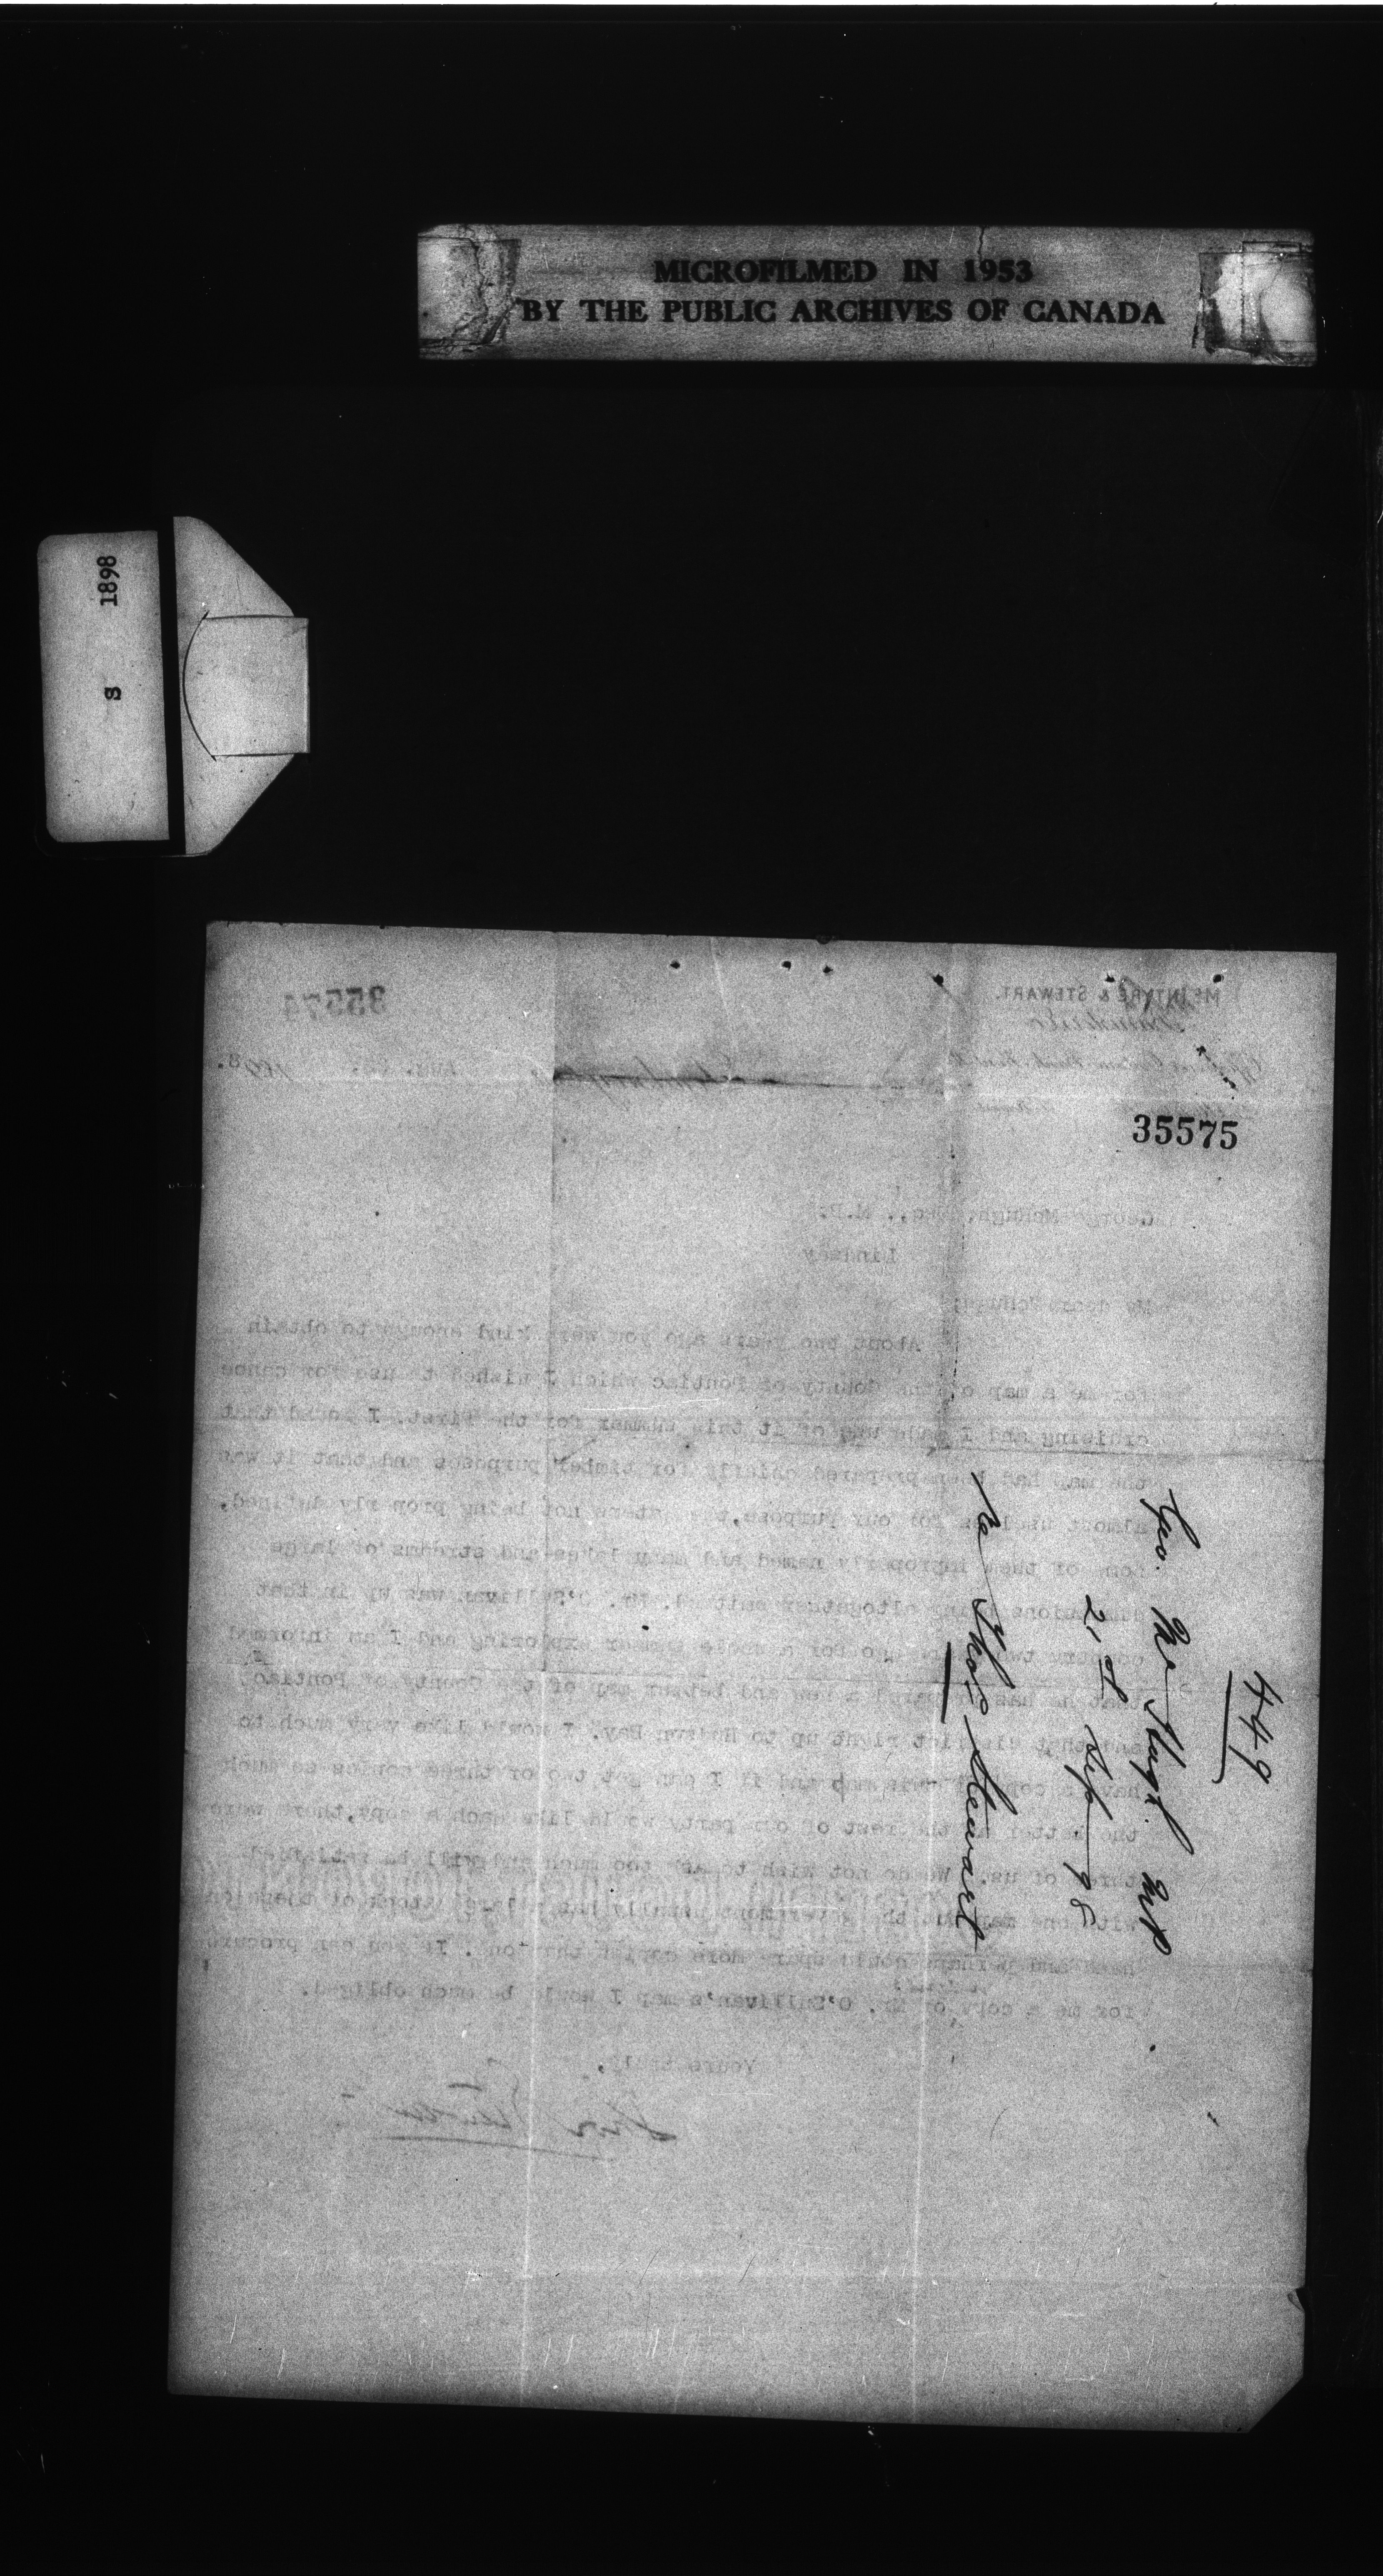 MICROFILMED IN 1953
BY THE PUBLIC ARCHIVES OF CANADA
S 1898
35574
McINTYRE & STEWART.
Aug. 1898.
35575
George McHugh, Esq., M.P.
Lindsay
My dear McHugh:
About two years ago you were kind enough to obtain
for me a map of the County of Pontiac which I wished to use for canoe
cruising and I made use of it this summer for the first. I found that
the map had been prepared chiefly for timber purposes and that it was
almost useless for our purpose, the waters not being properly defined,
some of them improperly named and many lakes and streams of large
dimensions being altogether omitted. Mr. O'Sullivan was up in that
country two years ago for a whole summer exploring and I am informed
that he has prepared a new and better map of the County of Pontiac
and that district right up to Hudson Bay. I would like very much to
have a copy of this map and if I can get two or three copies so much
the better as the rest of our party would like each a copy, there were
three of us. We do not wish to ask too much and will be satisfied
with one map but the government usually has a large stock of these on
hand and perhaps could spare more easily than one. If you can procure
for me a copy of Mr. O'Sullivan's map I would be much obliged.
Yours truly,
Thos Stewart
449
Geo. McHugh MP
21st Sep 98
re Thos Stewart